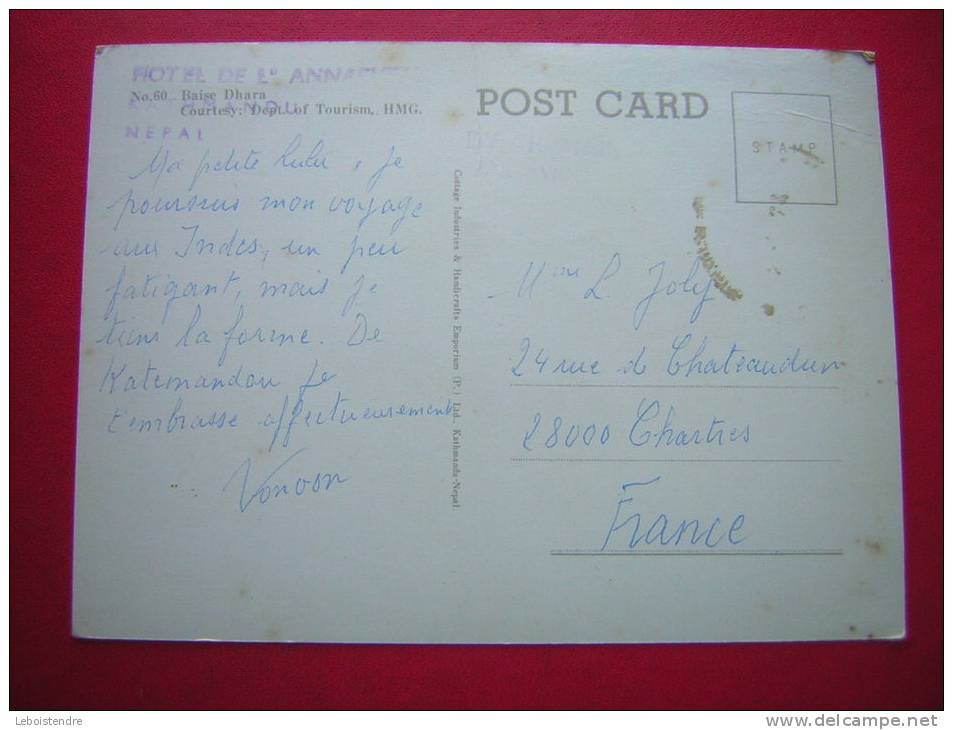 HOTEL DE L'
No.60 Baise Dhara
Courtesy: Dept. of Tourism, HMG.
NEPAL
Ma petite lulu, je
poursuis mon voyage
aux Indes, un peu
fatigant, mais je
tiens la forme. De
Katemandou je
t'embrasse affectueusement
Cottage Industries & Handicrafts Emporium (P.) Ltd., Kathmandu-Nepal.
POST CARD
STAMP
Mme L. Joly
24 rue de Chateaudun
28000 Chartres
France
Leboistendre
www.delcampe.net